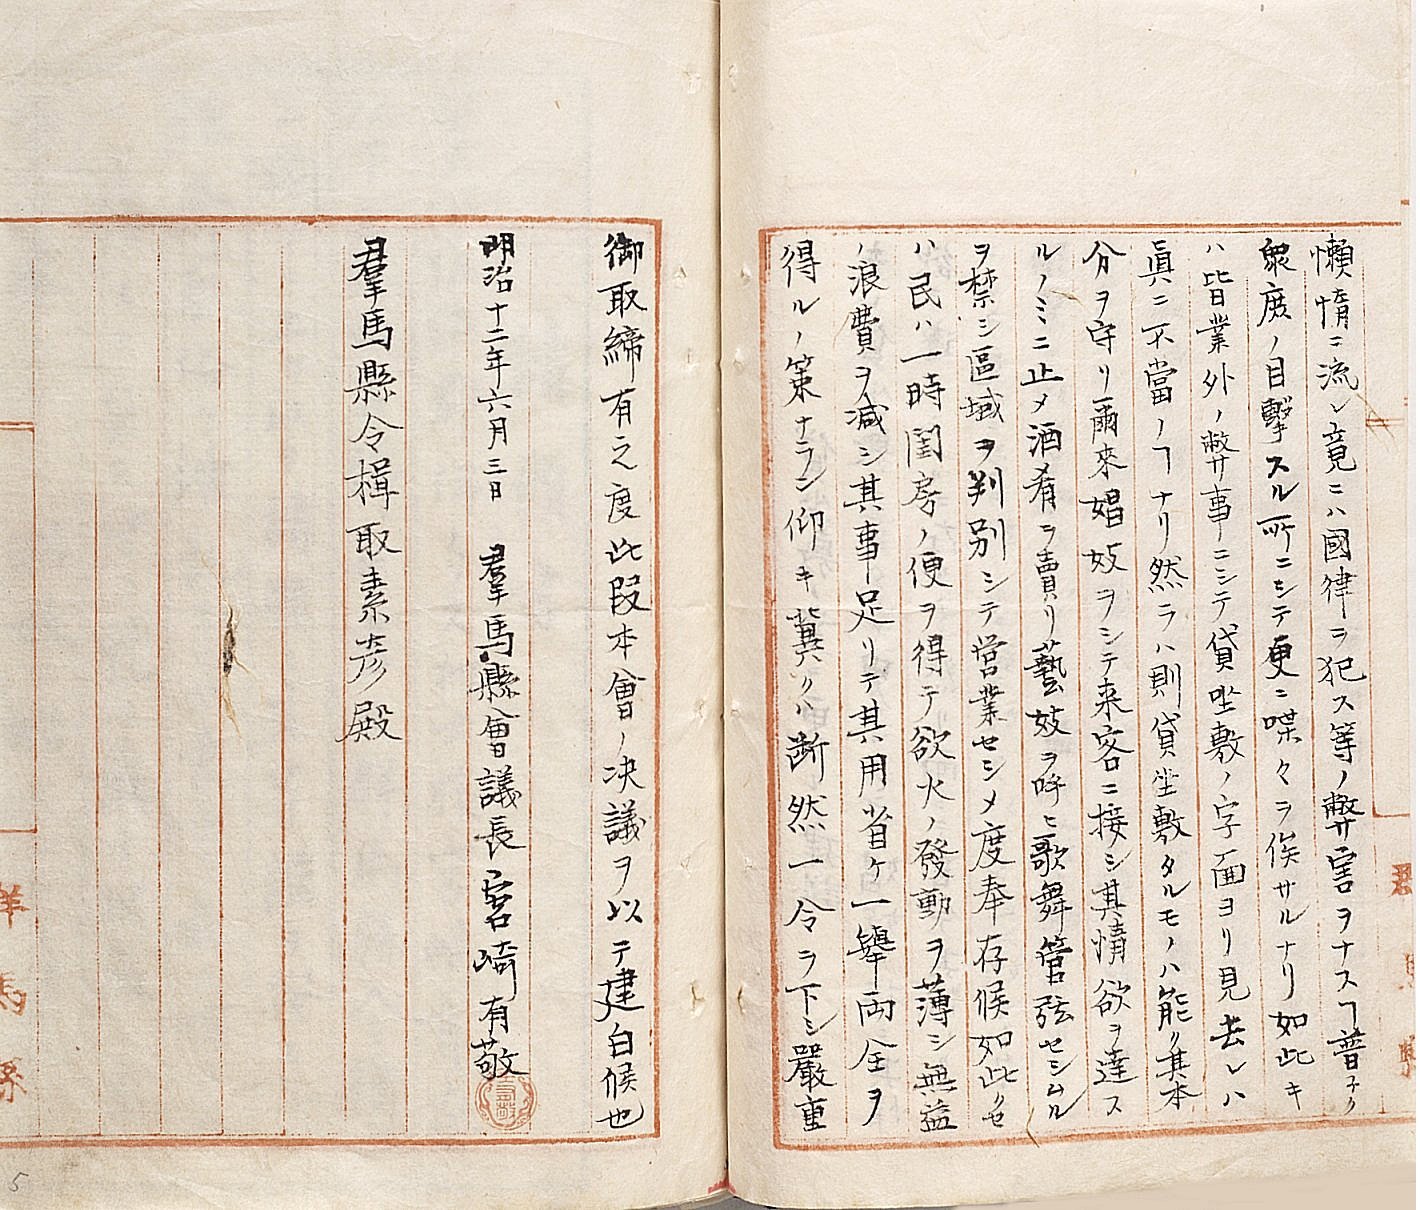 懶惰ニ流レ竟ニハ國律ヲ犯ス等ノ弊害ヲナスヿ普子ク
衆庶ノ目撃スル所ニシテ更ニ喋々ヲ俟サルナリ如此キ
ハ皆業外ノ弊事ニシテ貸坐敷ノ字面ヨリ見去レハ
眞ニ不當ノヿナリ然ラハ則貸坐敷タルモノハ能ク其本
分ヲ守リ爾來娼妓ヲシテ来客ニ接シ其情欲ヲ達ス
ルノミニ止メ酒肴ヲ賣リ藝妓ヲ呼ヒ歌舞管弦セシムル
ヲ禁シ區域ヲ判別シテ営業セシメ度奉存候如此クセ
ハ民ハ一時閨房ノ便ヲ得テ欲火ノ發動ヲ薄シ無益
ノ浪費ヲ減シ其事足リテ其用省ケ一擧両全ヲ
得ルノ策ナラン仰キ冀クハ断然一令ヲ下シ嚴重
御取締有之度此段本會ノ决議ヲ以テ建白候也
明治十二年六月三日 羣馬縣會議長宮崎有敬
羣馬縣令楫取素彦殿
羣馬縣
5